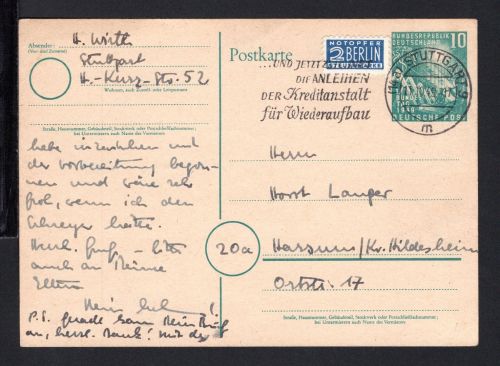 Absender:
H. Wirth
Stuttgart
H.-Kurz-Str. 52
Wohnort, auch Zustell- oder Leitpostamt
Straße, Hausnummer, Gebäudeteil, Stockwerk oder Postschließfachnummer;
bei Untermietern auch Name des Vermieters
habe inzwischen mit
der Vorbereitung begon-
nen und wäre sehr
froh, wenn ich den
hätte.
Herzl. Gruß – bitte
auch an Deine
Eltern
Dein
P.S. gerade kam Dein Brief
an, herzl. Dank!
Postkarte
NOTOPFER
2 BERLIN
STEUERMARKE
BUNDESREPUBLIK
DEUTSCHLAND
10
STUTTGART 9
m
DEUTSCHE POST
UND JETZT
DIE ANLEIHEN
DER Kreditanstalt
für Wiederaufbau
Herrn
Horst Langer
20a
Harsum/Kr. Hildesheim
Ortsstr. 17
Straße, Hausnummer, Gebäudeteil, Stockwerk oder Postschließfachnummer;
bei Untermietern auch Name des Vermieters